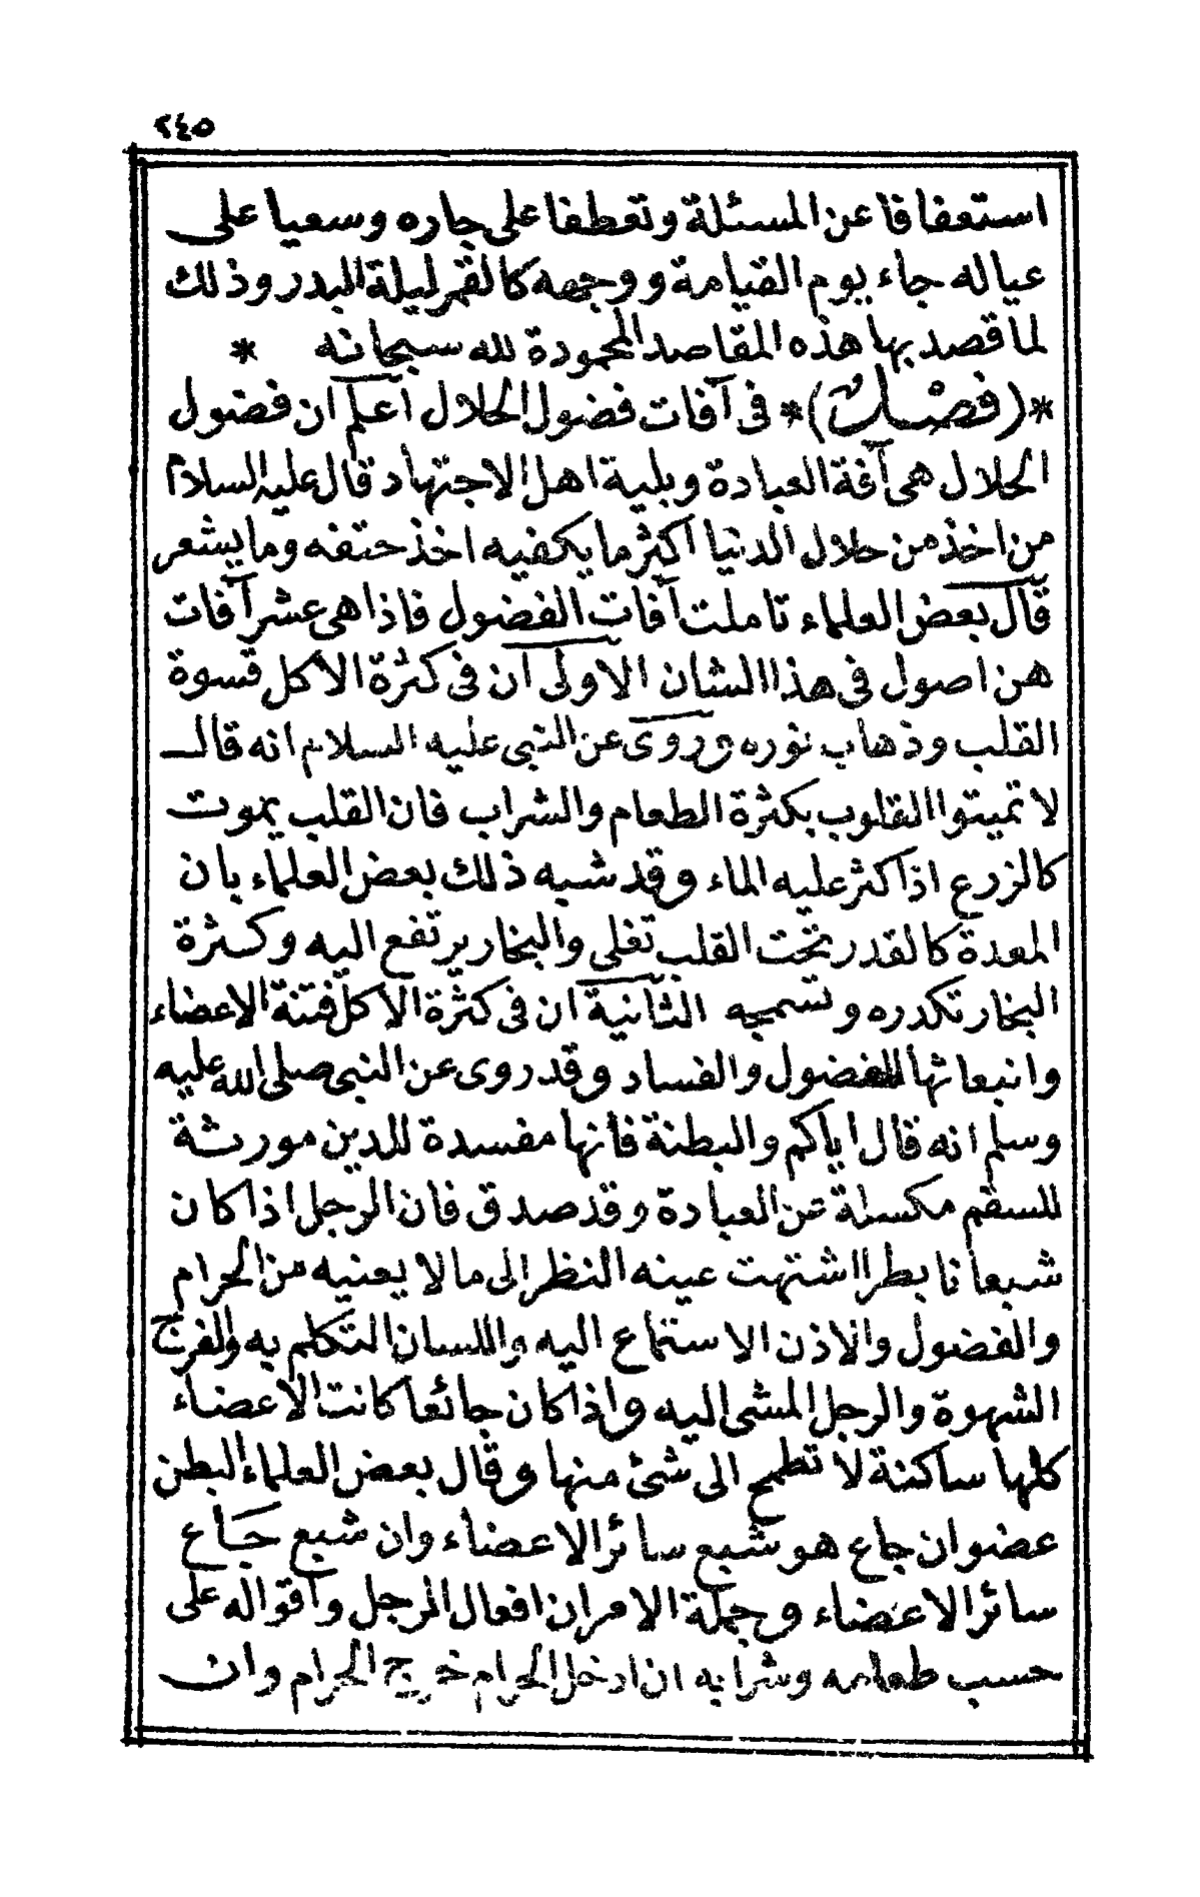 ٢٤٥
استعفافا عن المسئلة وتعطفا على جاره وسعيا على
عياله جاء يوم القيامة ووجهه كالقمر ليلة البدر وذلك
لما قصد بها هذه المقاصد المحمودة لله سبحانه *
*(فصل)* فى آفات فضول الحلال اعلم ان فضول
الحلال هى آفة العبادة وبلية اهل الاجتهاد قال عليه السلام
من اخذ من حلال الدنيا اكثر ما يكفيه اخذ حتفه وما يشعر
قال بعض العلماء تاملت آفات الفضول فاذا هى عشر آفات
هن اصول فى هذا الشان الاولى ان فى كثرة الاكل قسوة
القلب وذهاب نوره وروى عن النبى عليه السلام انه قال
لا تميتوا القلوب بكثرة الطعام والشراب فان القلب يموت
كالزرع اذا كثر عليه الماء وقد شبه ذلك بعض العلماء بان
المعدة كالقدر تحت القلب تغلى والبخار يرتفع اليه وكثرة
البخار تكدره وتسمجه الثانية ان فى كثرة الاكل فتنة الاعضاء
وانبعاثها للفضول والفساد وقد روى عن النبى صلى الله عليه
وسلم انه قال اياكم والبطنة فانها مفسدة للدين مورثة
للسقم مكسلة عن العبادة وقد صدق فان الرجل اذا كان
شبعانا بطرا اشتهت عينه النظر الى ما لا يعنيه من الحرام
والفضول والاذن الاستماع اليه واللسان التكلم به والفرج
الشهوة والرجل المشى اليه واذا كان جائعا كانت الاعضاء
كلها ساكنة لا تطمح الى شئ منها وقال بعض العلماء البطن
عضو ان جاع هو شبع سائر الاعضاء وان شبع جاع
سائر الاعضاء وجملة الامر ان افعال الرجل واقواله على
حسب طعامه وشرابه ان ادخل الحرام خرج الحرام وان